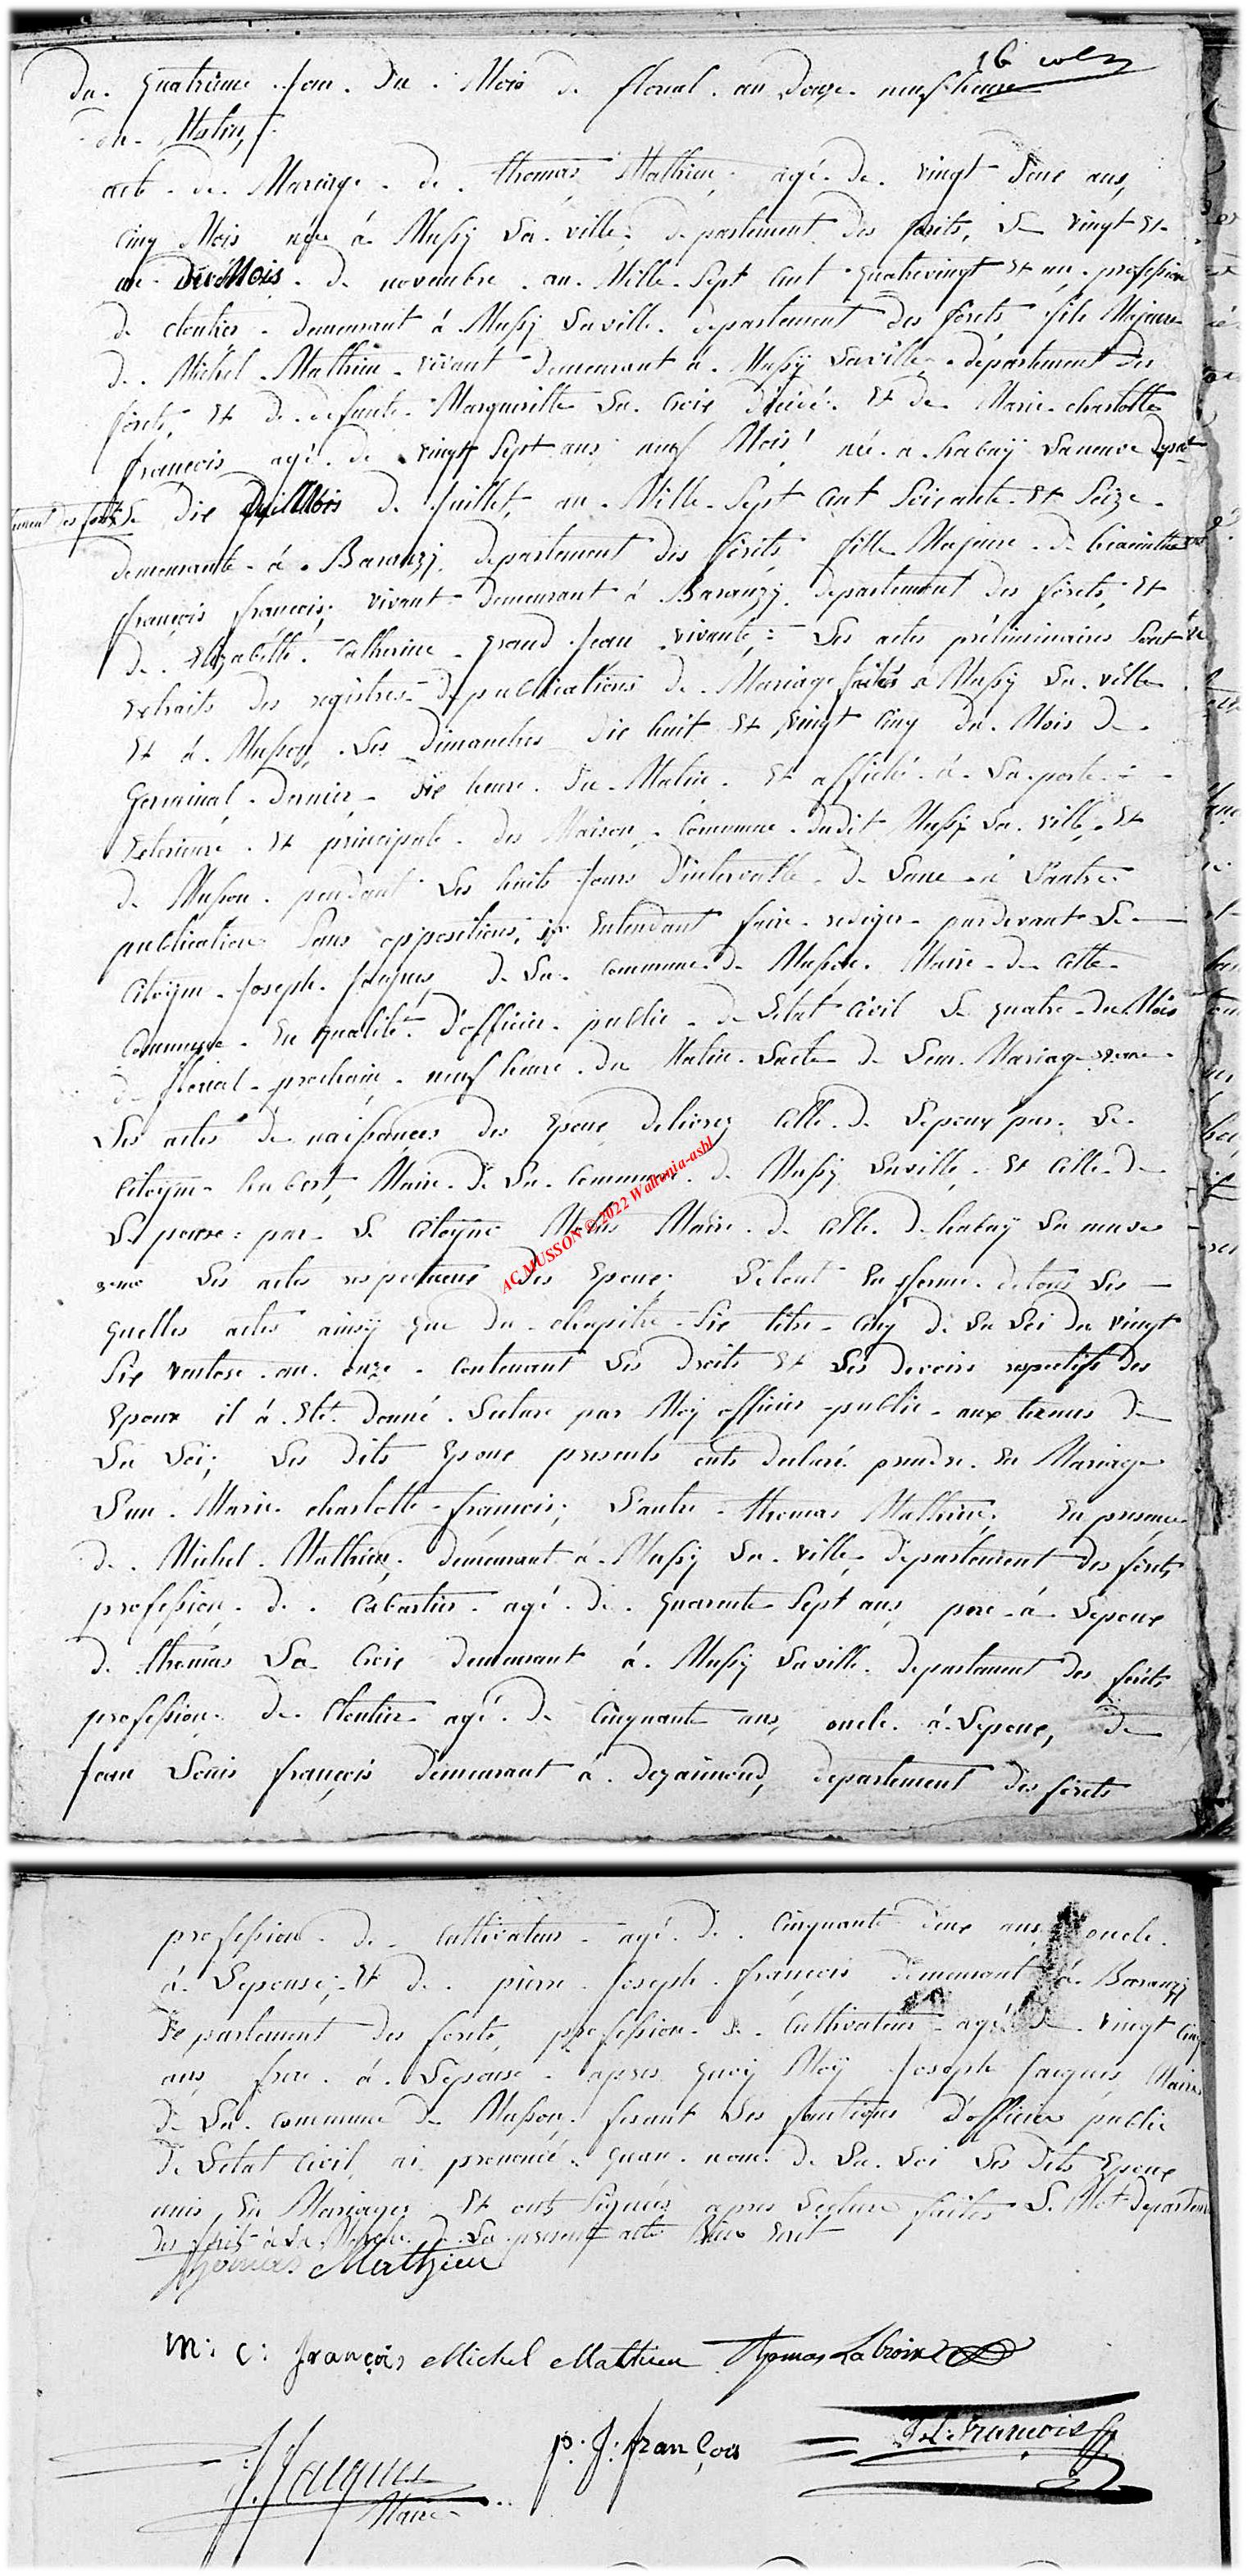 du quatrième jour du Mois de floreal an Douze neuf heure
du Matin,
acte de Mariage de thomas Mathieu agé de vingt deux ans,
cinq Mois née á Mussy La ville departement des forêts, Le vingt et
un du Mois de novembre an Mille Sept Cent quatrevingt et un, profession
de cloutier demeurant á Mussy Laville departement des forets, fils Majeure
de Michel Mathieu vivant demeurant a Mussÿ Laville departement des
forêts, Et de defunte Margueritte La Croix Et de Marie charlotte
françois agé de vingt Sept ans neuf Mois née a habaÿ Laneuve depar
tement des forêts Le dix du Mois de Juillet, an Mille Sept Cent Soixante Et Seize
demeurante á Baranzy departement des forêts, fille Majeure de
françois françois, vivant demeurant á Baranzÿ departement des forêts, Et
de Elizabethe Catherine grand Jean vivante, Les actes préliminaires Sont
Extraits des registres de publications de Mariage faites a Mussÿ La ville
Et á Musson, Les dimanches dix huit Et vingt Cinq du Mois de
Germinal dernier dix heure du Matin Et affiché á La porte
Exterieure Et principale des Maison Commune dudit Mussy La ville, Et
de Musson pendant Les huits Jours d'intervalle de Lune á Lautre
publication Sans oppositions, Entendant faire rediger pardevant Le
Citoÿen Joseph Jacques, de La commune de Musson Maire de Cette
Commune En qualité d'officier public de Letat Civil Le quatre du Mois
de floreal prochain neuf heure du Matin Lacte de Leur Mariage
Les actes de naissances des Epoux delivrez Celle de Lepoux par Le
Citoÿen hubert, Maire de La Commune de Mussy Laville, Et Celle de
Lepouse par Le Citoÿen Maire de Celle de habaÿ La neuve
Les actes respectueux des Epoux, Letout En forme de tous Les
quelles actes ainsÿ que du chapitre Six titre Cinq de La Loi du vingt
Six ventose an onze contenant Les droits Et Les devoirs respectifs des
Epoux il á Eté donné Lecture par Moÿ officier public aux termes de
La Loi; Les dits Epoux presents onts declaré prendre En Mariage
Lun Marie charlotte françois, Lautre thomas Mathieu, En presence
de Michel Mathieu, demeurant á Mussy La ville departement des forêts
profession de Cabartier agé de quarente Sept ans, pere á Lepoux
de thomas La Croix demeurant á Mussy Laville departement des forêts
profession de Cloutier agé de Cinquante ans, oncle á Lepoux, de
Jean Louis françois demeurant á dezaimond, departement des forets
profession de Cultivateur agé de Cinquante deux ans oncle
á Lepouse, Et de pierre Joseph françois demeurant á Baranzÿ
departement des forets, profession de Cultivateur agé de vingt Cinq
ans, frere á Lepouse apres quoÿ Moÿ Joseph Jacques, Maire
de La commune de Musson fesant Les fonctions d'officier public
de Letat Civil ai prononcé quau nom de La Loi Les dits Epoux
unis En Mariages Et onts Signés apres Lecture faites Le Mot departement
des forêts á La de La present acte
thomas Mathieu
m: c: françois Michel Mathieu Thomas LaCroix
J. Jacques p: J: françois J. L. françois
Maire
AC MUSSON © 2022 Wallonia-asbl